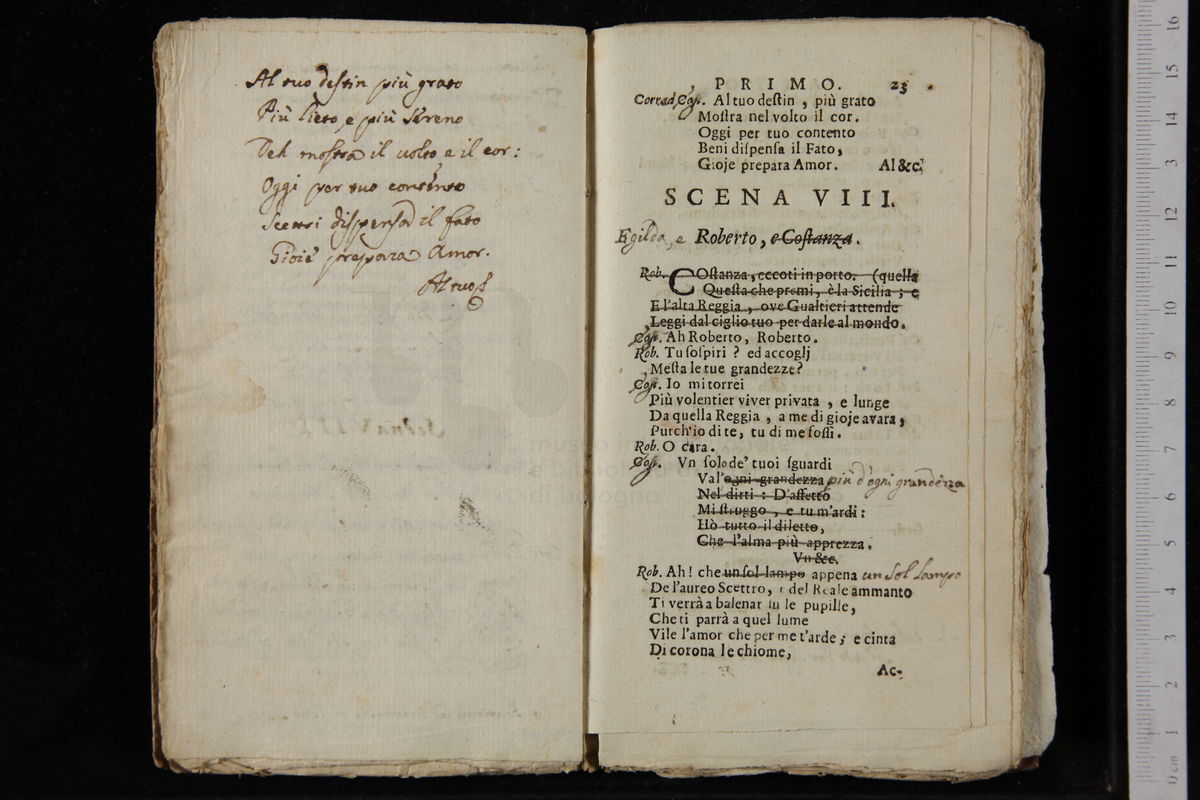 Al tuo destin più grato
Più lieto, e più sereno
Deh mostra il volto, e il cor:
Oggi per tuo contento
dispensa il fato
Gioie prepara Amor.
Al tuo &
PRIMO. 23
Corrad. Cos. Al tuo destin, più grato
Mostra nel volto il cor.
Oggi per tuo contento
Beni dispensa il Fato,
Gioje prepara Amor. Al &c.
SCENA VIII.
Egilda, e Roberto, e Costanza.
Rob. COstanza, eccoti in porto. (quella
Questa che premi, è la Sicilia; e
E l'alta Reggia, ove Gualtieri attende
Leggi dal ciglio tuo per darle al mondo.
Cos. Ah Roberto, Roberto.
Rob. Tu sospiri? ed accoglj
Mesta le tue grandezze?
Cos. Io mi torrei
Più volentier viver privata, e lunge
Da quella Reggia, a me di gioje avara,
Purch'io di te, tu di me fossi.
Rob. O cara.
Cos. Vn solo de' tuoi sguardi
Val' ogni grandezza più d'ogni grandezza
Nel dirti: D'affetto
Mi struggo, e tu m'ardi:
Hò tutto il diletto,
Che l'alma più apprezza.
Vn &c.
Rob. Ah! che un sol lampo appena un sol lampo
De l'aureo Scettro, e del Reale ammanto
Ti verrà a balenar su le pupille,
Che ti parrà a quel lume
Vile l'amor che per me t'arde; e cinta
Di corona le chiome,
Ac-
museo in
e biblio
di bologna
16
15
14
13
12
11
10
9
8
7
6
5
4
3
2
1
0 cm